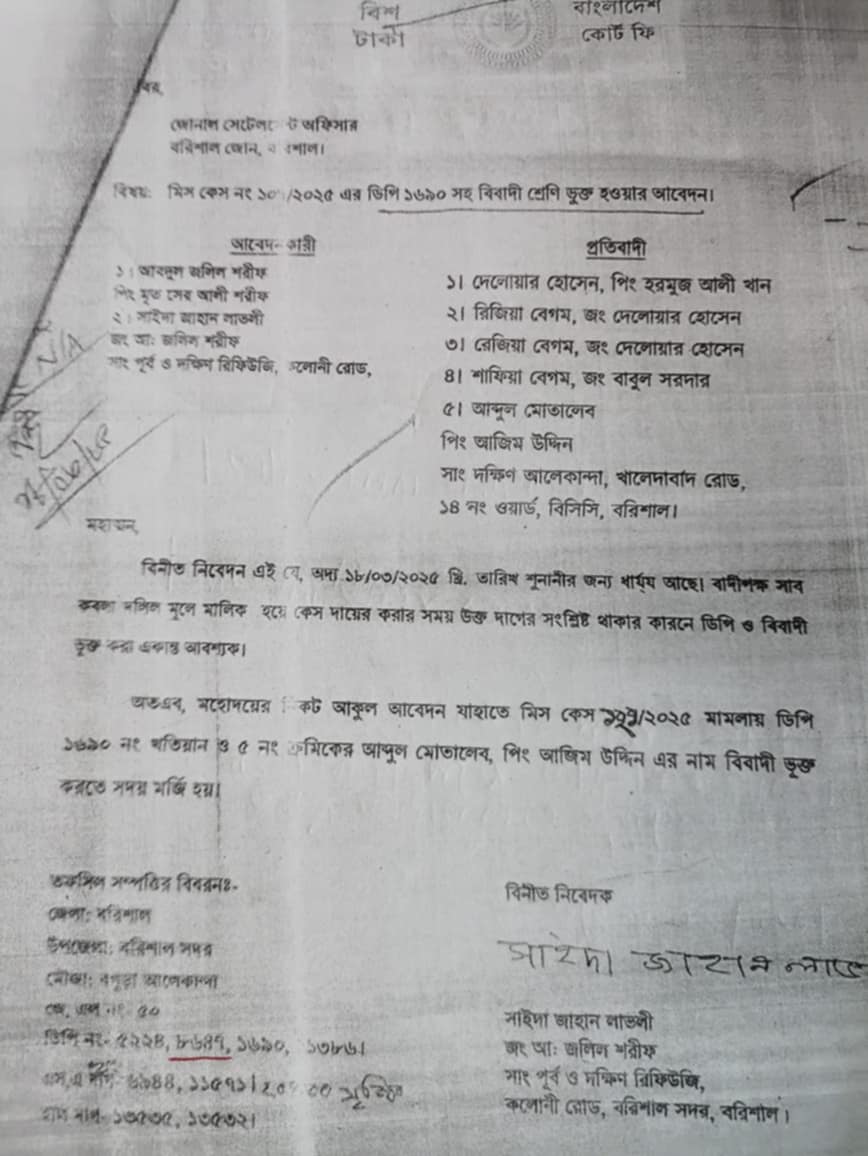 বিশ
টাকা
বাংলাদেশ
কোর্ট ফি
বরাবর,
জোনাল সেটেলমেন্ট অফিসার
বরিশাল জোন, বরিশাল।
বিষয়: মিস কেস নং /২০২৫ এর ডিপি ১৬৯০ সহ বিবাদী শ্রেণি ভুক্ত হওয়ার আবেদন।
আবেদনকারী
১। আবদুল জলিল শরীফ
পিং মৃত মেহের আলী শরীফ
২। সাইদা জাহান লাভলী
জং আঃ জলিল শরীফ
সাং পূর্ব ও দক্ষিণ রিফিউজি, কলোনী রোড,
প্রতিবাদী
১। দেলোয়ার হোসেন, পিং হরমুজ আলী খান
২। রিজিয়া বেগম, জং দেলোয়ার হোসেন
৩। রেজিয়া বেগম, জং দেলোয়ার হোসেন
৪। শাফিয়া বেগম, জং বাবুল সরদার
৫। আব্দুল মোতালেব
পিং আজিম উদ্দিন
সাং দক্ষিণ আলেকান্দা, খালেদাবাদ রোড,
১৪ নং ওয়ার্ড, বিসিসি, বরিশাল।
মহাত্মন,
বিনীত নিবেদন এই যে, অদ্য ১৮/০৩/২০২৫ খ্রি. তারিখ শুনানীর জন্য ধার্য্য আছে। বাদীপক্ষ সাব
কবলা দলিল মূলে মালিক হয়ে কেস দায়ের করার সময় উক্ত দাগের সংশ্লিষ্ট থাকার কারনে ডিপি ও বিবাদী
ভুক্ত করা একান্ত আবশ্যক।
অতএব, মহোদয়ের নিকট আকুল আবেদন যাহাতে মিস কেস /২০২৫ মামলায় ডিপি
১৬৯০ নং খতিয়ান ও ৫ নং ক্রমিকের আব্দুল মোতালেব, পিং আজিম উদ্দিন এর নাম বিবাদী ভুক্ত
করতে সদয় মর্জি হয়।
তফসিল সম্পত্তির বিবরনঃ-
জেলা: বরিশাল
উপজেলা: বরিশাল সদর
মৌজা: বগুড়া আলেকান্দা
জে, এল নং- ৫০
ডিপি নং- ৫২২৪, ৮৬৪৭, ১৬৯০, ১৩৮৬।
হাল দাগ- ১৩৫৩৫, ১৩৫৩২।
বিনীত নিবেদক
সাইদা জাহান লাভলী
সাইদা জাহান লাভলী
জং আঃ জলিল শরীফ
সাং পূর্ব ও দক্ষিণ রিফিউজি,
কলোনী রোড, বরিশাল সদর, বরিশাল।